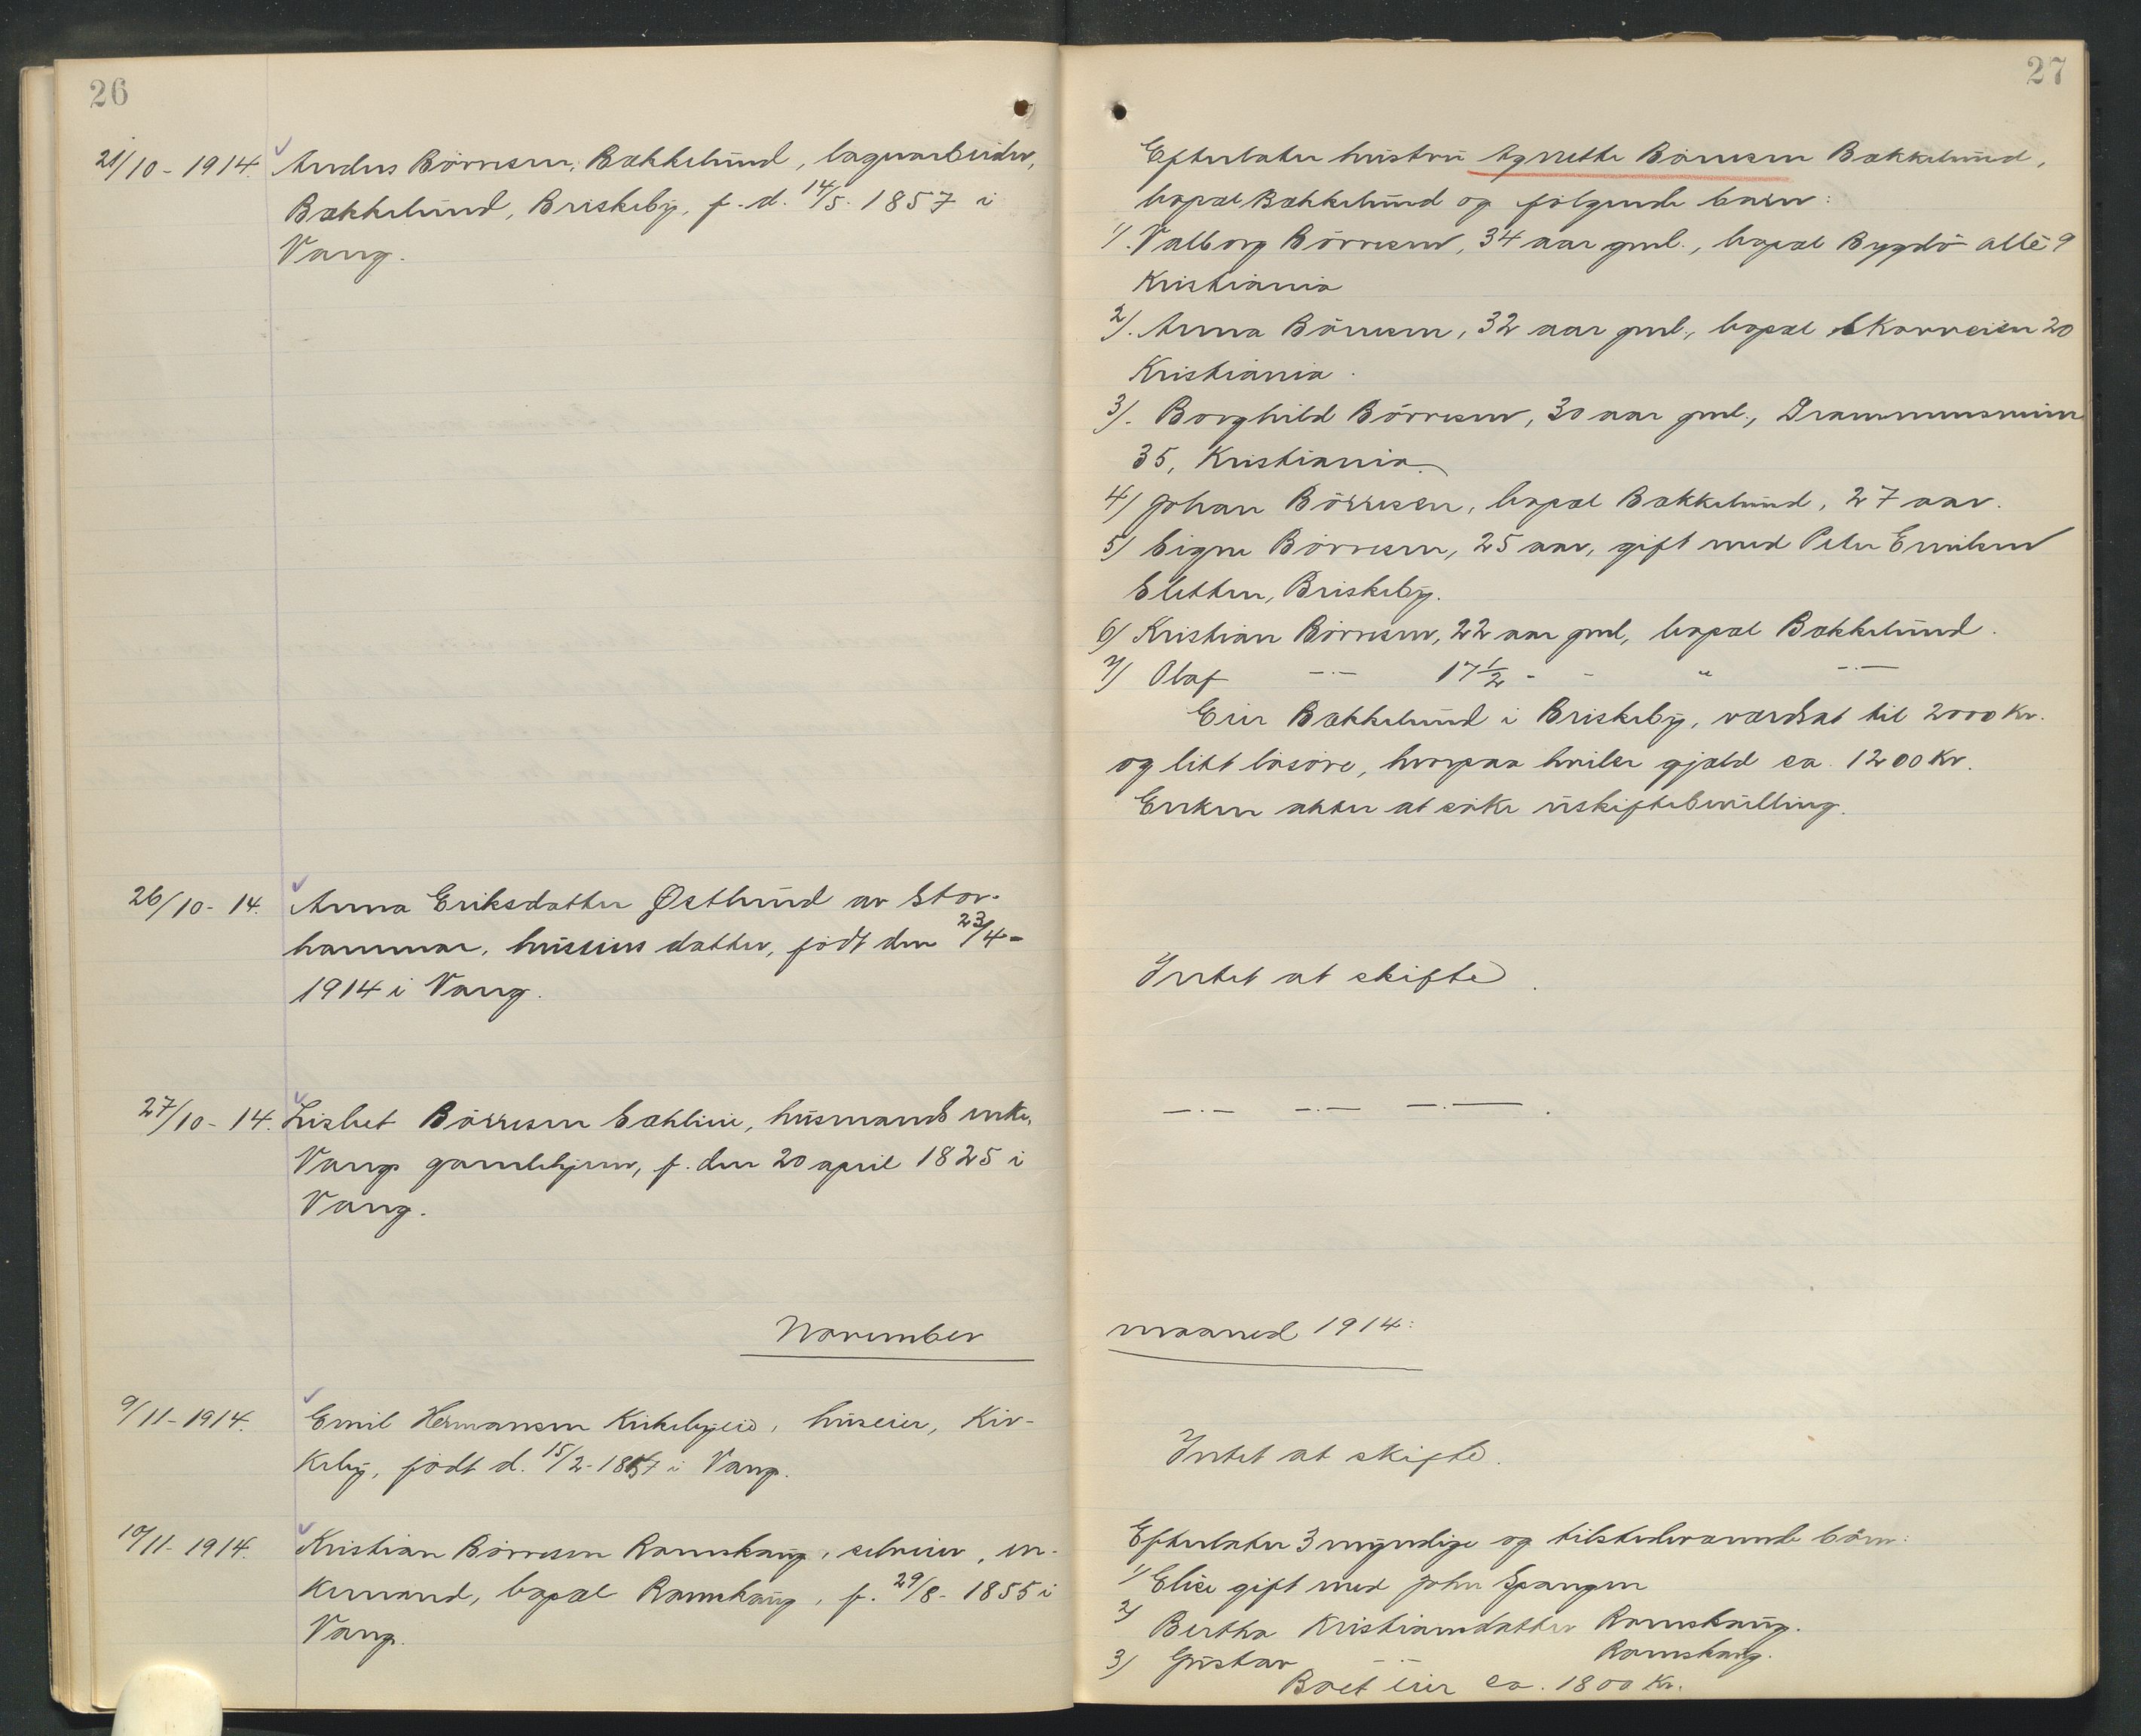 26
21/10 - 1914. Anders Börresen, Bækkelund, lagerarbeider,
Bækkelund, Briskeby, f. d. 14/5. 1857 i
Vang.
26/10 - 14. Anna Eriksdatter Østlund av Stor-
hammar, huseiers datter, født den 23/4 -
1914 i Vang.
27/10 - 14. Lisbet Börresen Sæhlie, husmands enke,
Vang gamlehjem, f. den 20 april 1825 i
Vang.
November
9/11 - 1914. Emil Hermansen Kirkebyeie, huseier, Kir-
keby, födt d. 15/2 - 1857 i Vang.
10/11 - 1914. Kristian Börresen Ramskaug, selveier, en-
kemand, bopæl Ramskaug, f. 29/8 - 1855 i
Vang.
27
Efterlater hustru Agnethe Börresen Bækkelund,
bopæl Bækkelund og følgende barn:
1). Valborg Börresen, 34 aar gml., bopæl Bygdö allé 9
Kristiania
2). Anna Börresen, 32 aar gml., bopæl Skovveien 20
Kristiania.
3). Borghild Börresen, 30 aar gml., Drammensveien
35, Kristiania.
4) Johan Börresen, bopæl Bækkelund, 27 aar.
5) Signe Börresen, 25 aar, gift med Peter Emilsen
Sletten, Briskeby.
6) Kristian Börresen, 22 aar gml, bopæl Bækkelund.
7) Olaf —·— 17 1/2 - - " —·—
Eier Bækkelund i Briskeby, værdsat til 2000 Kr.
og litt lösöre, hvorpaa hviler gjæld ca. 1200 Kr.
Enken akter at söke uskiftebevilling.
Intet at skifte.
—·— —·— —·—.
maaned 1914:
Intet at skifte.
Efterlater 3 myndige og tilstedeværende börn:
1) Elise gift med John Spangen
2) Bertha Kristiansdatter Ramskaug.
3) Gustav —·— Ramskaug.
Boet eier ca. 1800 Kr.